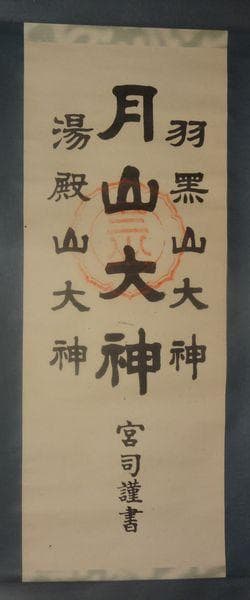 羽黑山大神
月山大神
湯殿山大神
宮司謹書